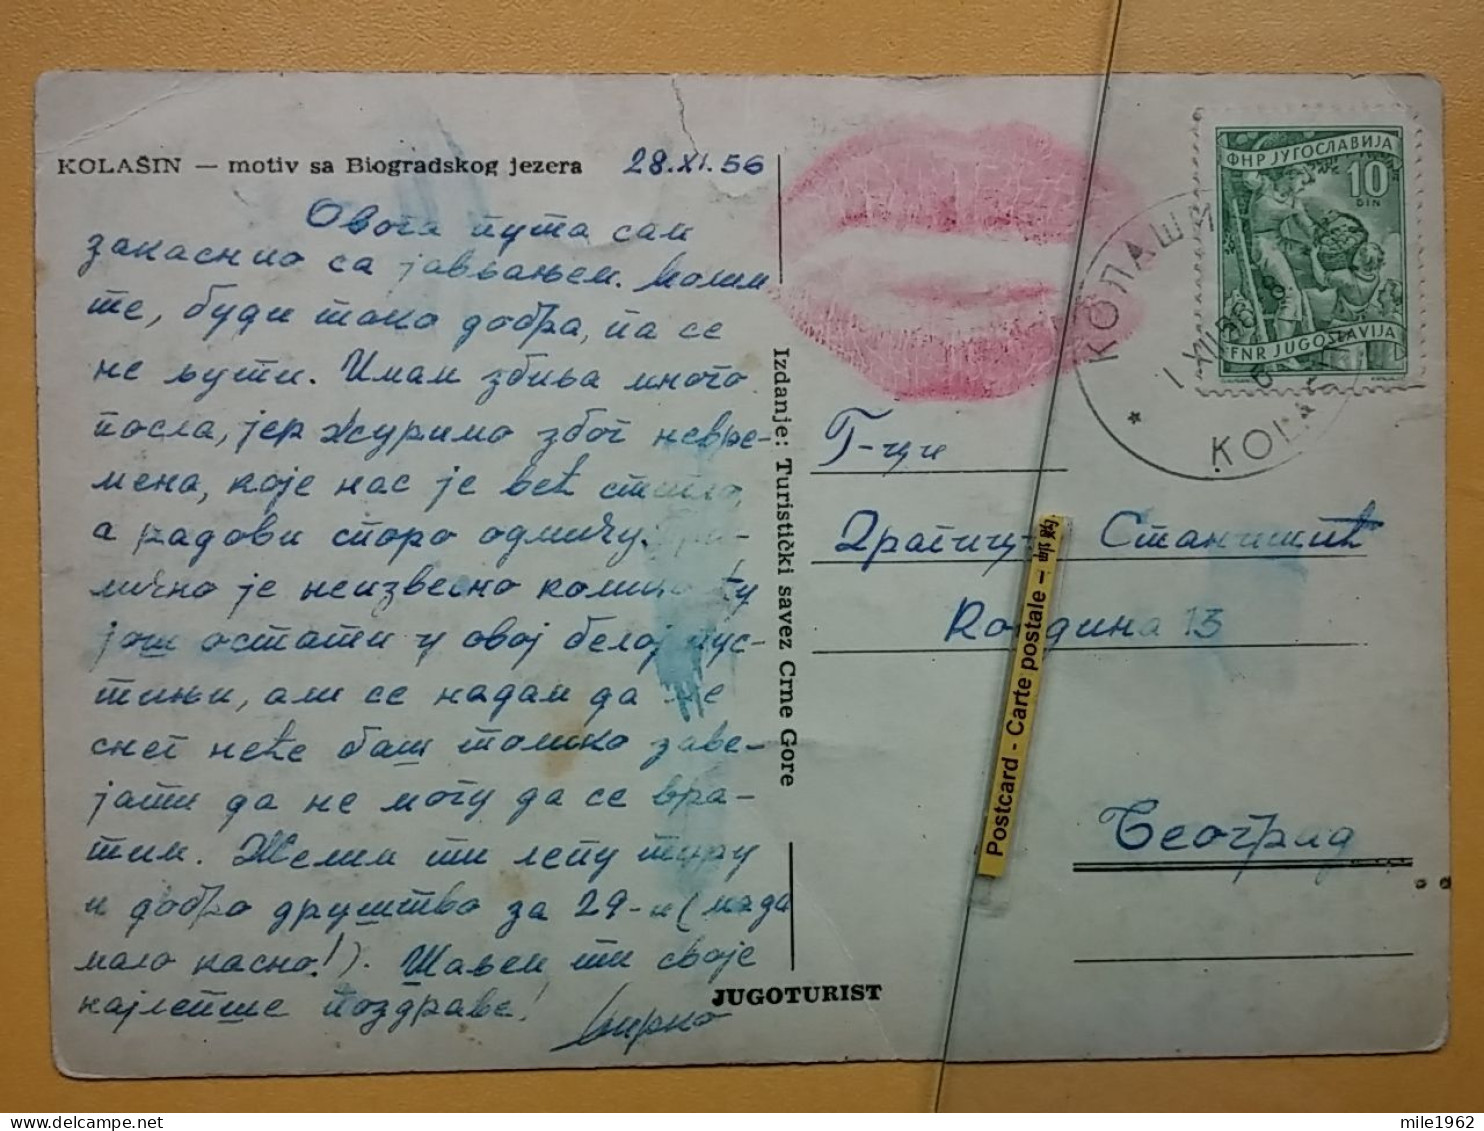 KOLAŠIN — motiv sa Biogradskog jezera 28.XI.56
Овога пута сам
закаснио са јављањем. Молим
те, буди тако добра, па се
не љути. Имам збиља много
посла, јер журимо због невре-
мена, које нас је већ стигло,
а радови споро одмичу. При-
лично је неизвесно колико ћу
још остати у овој белој пус-
тињи, али се надам да ме
снег неће баш толико заве-
јати да не могу да се вра-
тим. Желим ти лепу туру
и добро друштво за 29-и (мада
мало касно!). Шаљем ти своје
најлепше поздраве!
Мирко
Izdanje: Turistički savez Crne Gore
JUGOTURIST
ФНР ЈУГОСЛАВИЈА
10
DIN
FNR JUGOSLAVIJA
КОЛАШИН
Г-ци
Драгици Станишић
Кордина 13
Београд
Postcard - Carte postale -
mile1962